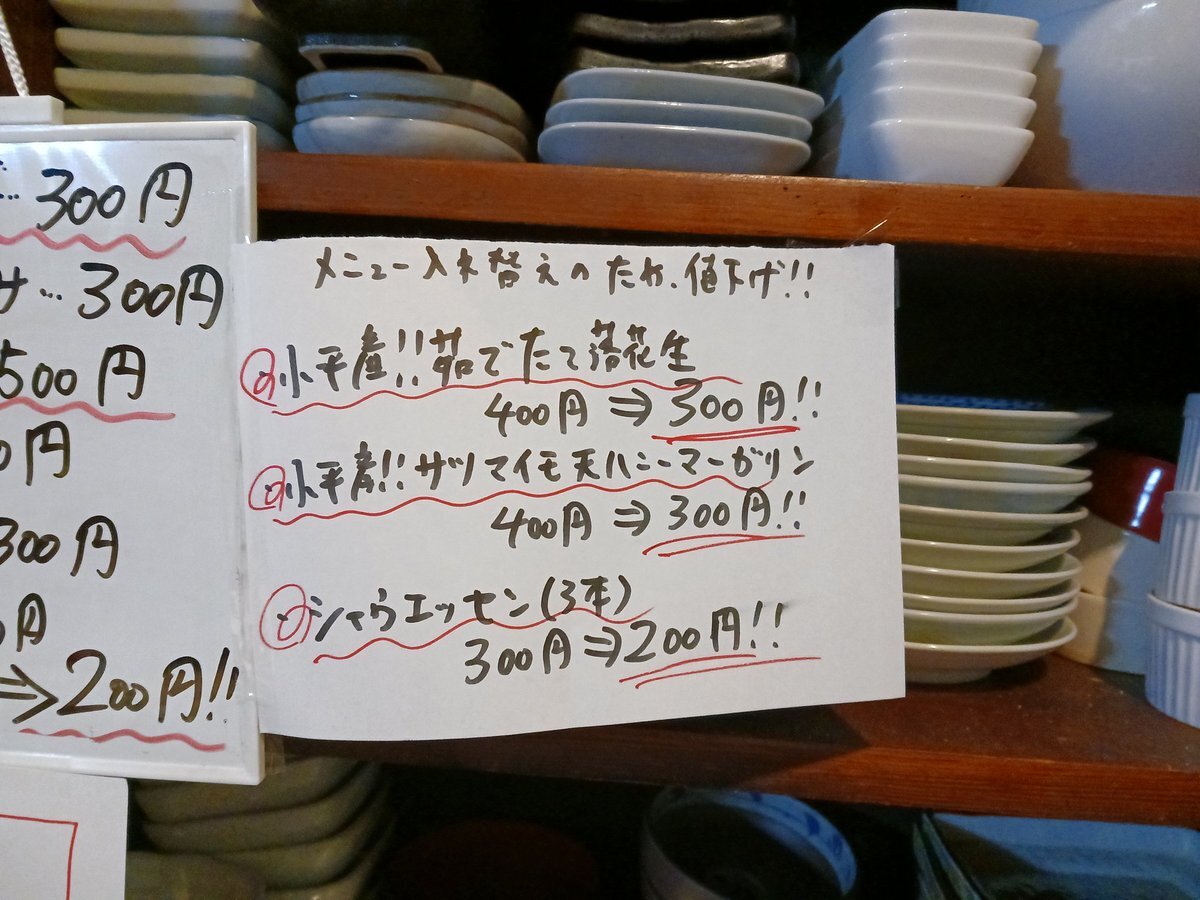 300円
サ…300円
500円
0円
300円
0円
⇒200円!!
メニュー入れ替えのため、値下げ!!
小平産!!茹でたて落花生
400円⇒300円!!
小平産!!サツマイモ天ハニーマーガリン
400円⇒300円!!
シャウエッセン(3本)
300円⇒200円!!